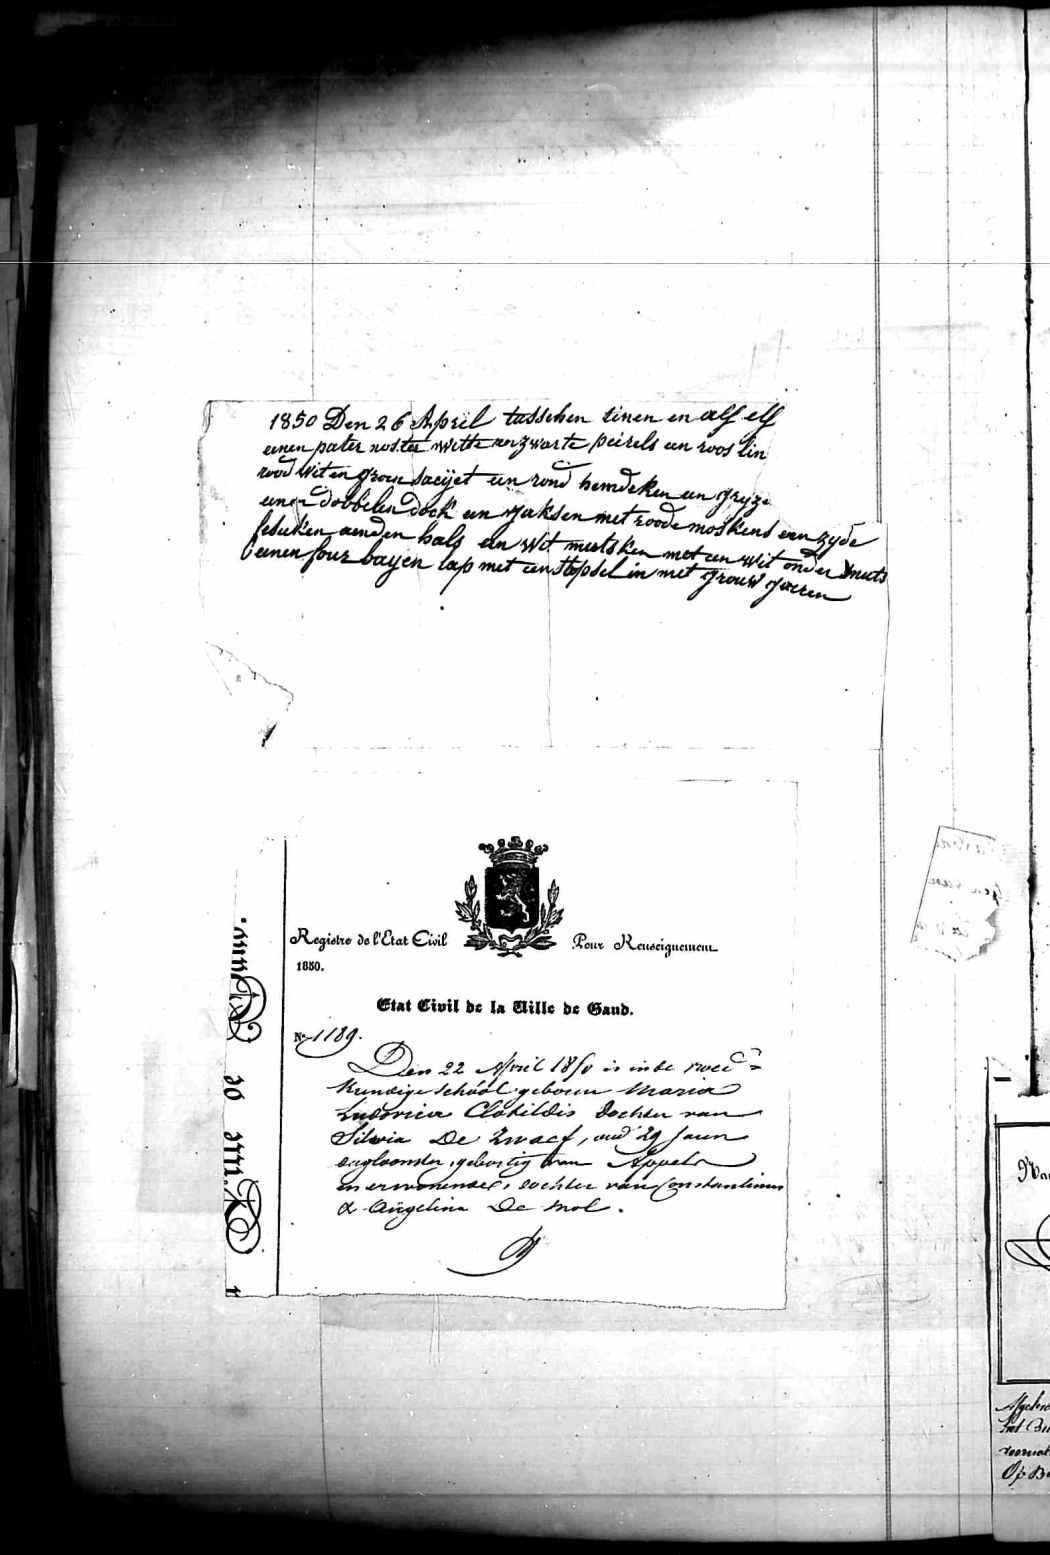 1850 Den 26 April tusschen tinen en alf elf
eenen pater noster witte en zwarte peirels een roos lin
rood wit en groen saeijet een rond hemdeken een gryze
eenen dobbelen dock een jaksen met roode moskens een zyde
feduken aen den hals een wit mutsken met een wit onder muts
eenen four bayen lap met een stopsel in met grouw gaeren
Registre de l'Etat Civil
Pour Renseignement
1850.
Etat Civil de la Ville de Gand.
No 1189.
Den 22 April 1850 is in de vroed=
kundige school geboren Maria
Ludovica Clotildis dochter van
Silvia De Zwaef, oud 29 jaren
dagloonster, geboortig van Appels
en er wonende, dochter van Constantinus
& Angelina De Mol.